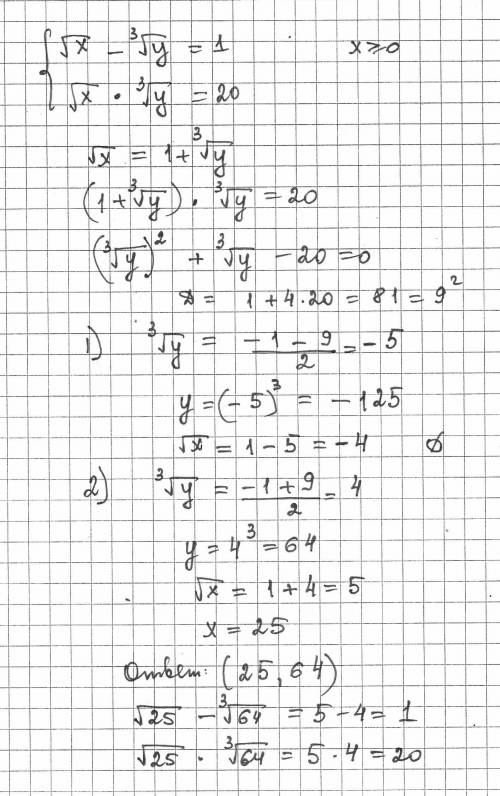 { √x − ∛y = 1    x ≥ 0
√x · ∛y = 20
√x = 1 + ∛y
(1 + ∛y) · ∛y = 20
(∛y)² + ∛y − 20 = 0
D = 1 + 4·20 = 81 = 9²
1) ∛y = (−1 − 9)/2 = −5
y = (−5)³ = −125
√x = 1 − 5 = −4    ∅
2) ∛y = (−1 + 9)/2 = 4
y = 4³ = 64
√x = 1 + 4 = 5
x = 25
Ответ: (25, 64)
√25 − ∛64 = 5 − 4 = 1
√25 · ∛64 = 5 · 4 = 20